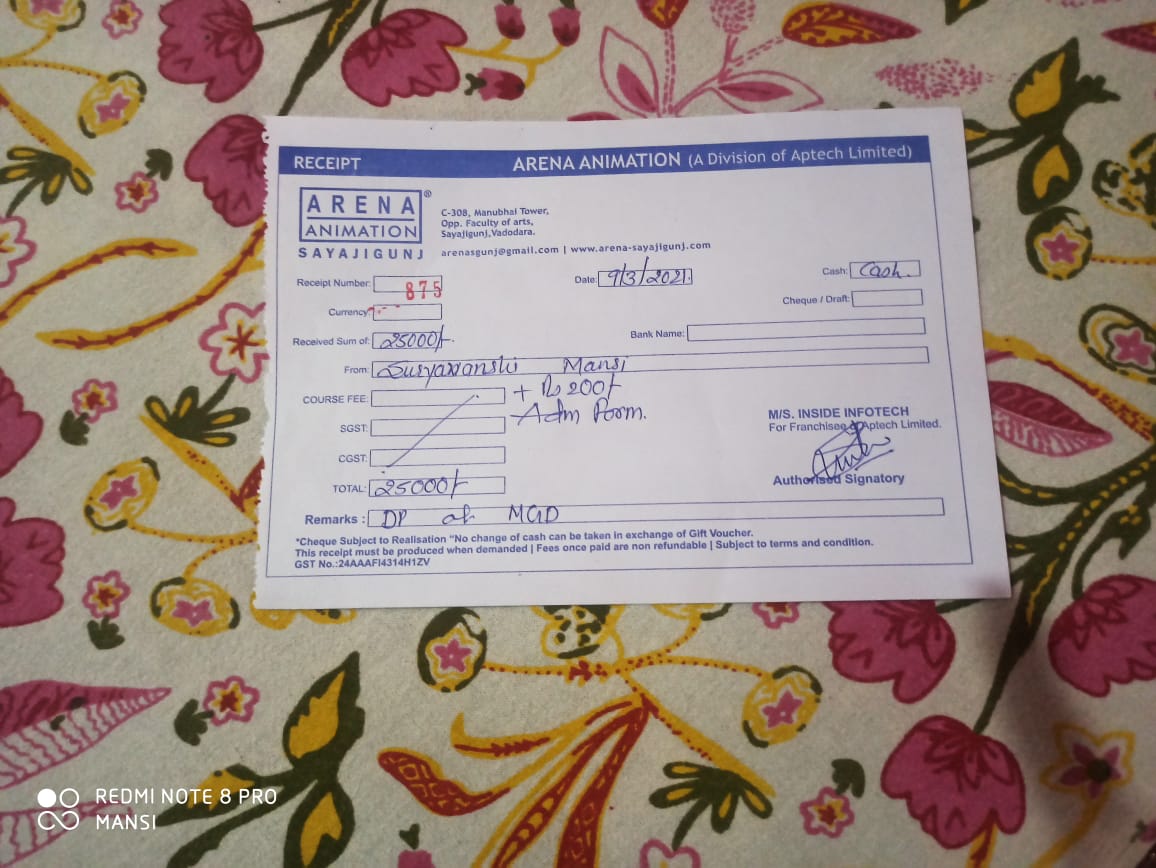 RECEIPT ARENA ANIMATION (A Division of Aptech Limited)
ARENA®
ANIMATION
SAYAJIGUNJ
C-308, Manubhai Tower,
Opp. Faculty of arts,
Sayajigunj,Vadodara.
arenasgunj@gmail.com | www.arena-sayajigunj.com
Receipt Number: 875 Date: 9/3/2021. Cash: Cash.
Currency: Cheque / Draft:
Received Sum of: 25000/-. Bank Name:
From: Suryawanshi Mansi
COURSE FEE: + Rs 200/-
Adm Form.
SGST:
CGST:
TOTAL: 25000/-
M/S. INSIDE INFOTECH
For Franchisee of Aptech Limited.
Authorised Signatory
Remarks : DP of MGD
*Cheque Subject to Realisation "No change of cash can be taken in exchange of Gift Voucher.
This receipt must be produced when demanded | Fees once paid are non refundable | Subject to terms and condition.
GST No.:24AAAFI4314H1ZV
REDMI NOTE 8 PRO
MANSI